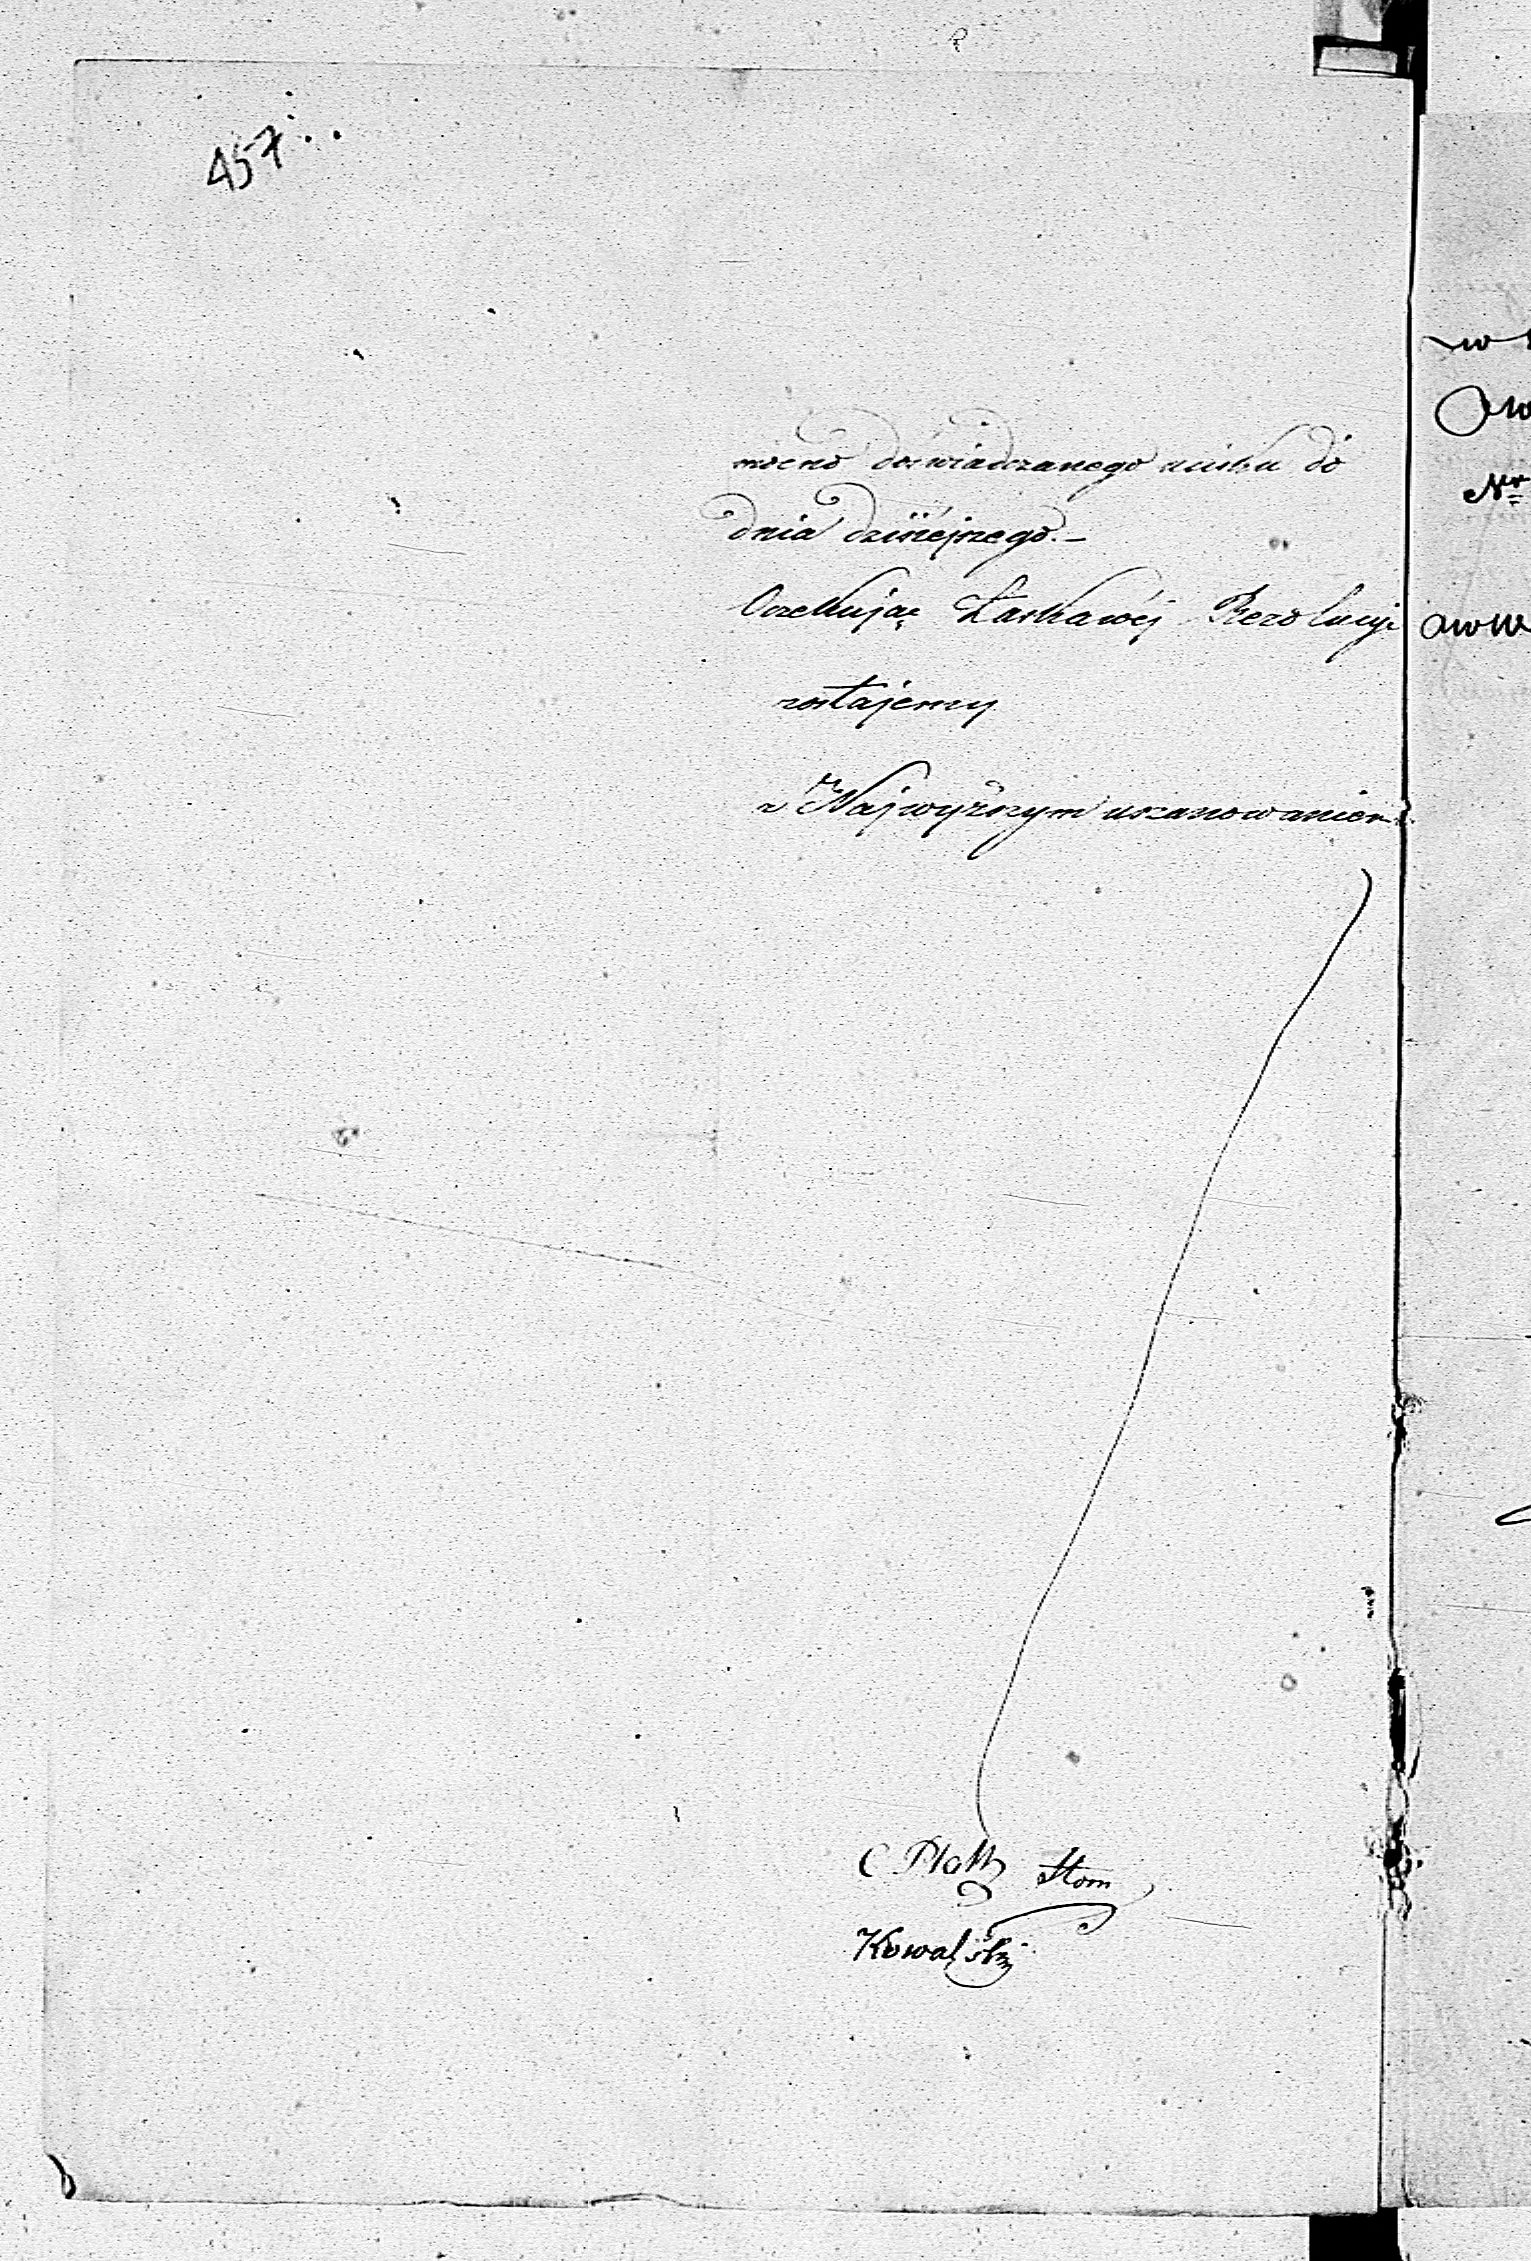 457
mocno doświadczanego ucisku do
dnia dzisiejszego.–
Oczekując Łaskawéj Rezolucyi
zostajemy
z Najwyższym uszanowaniem
C
Kowalski